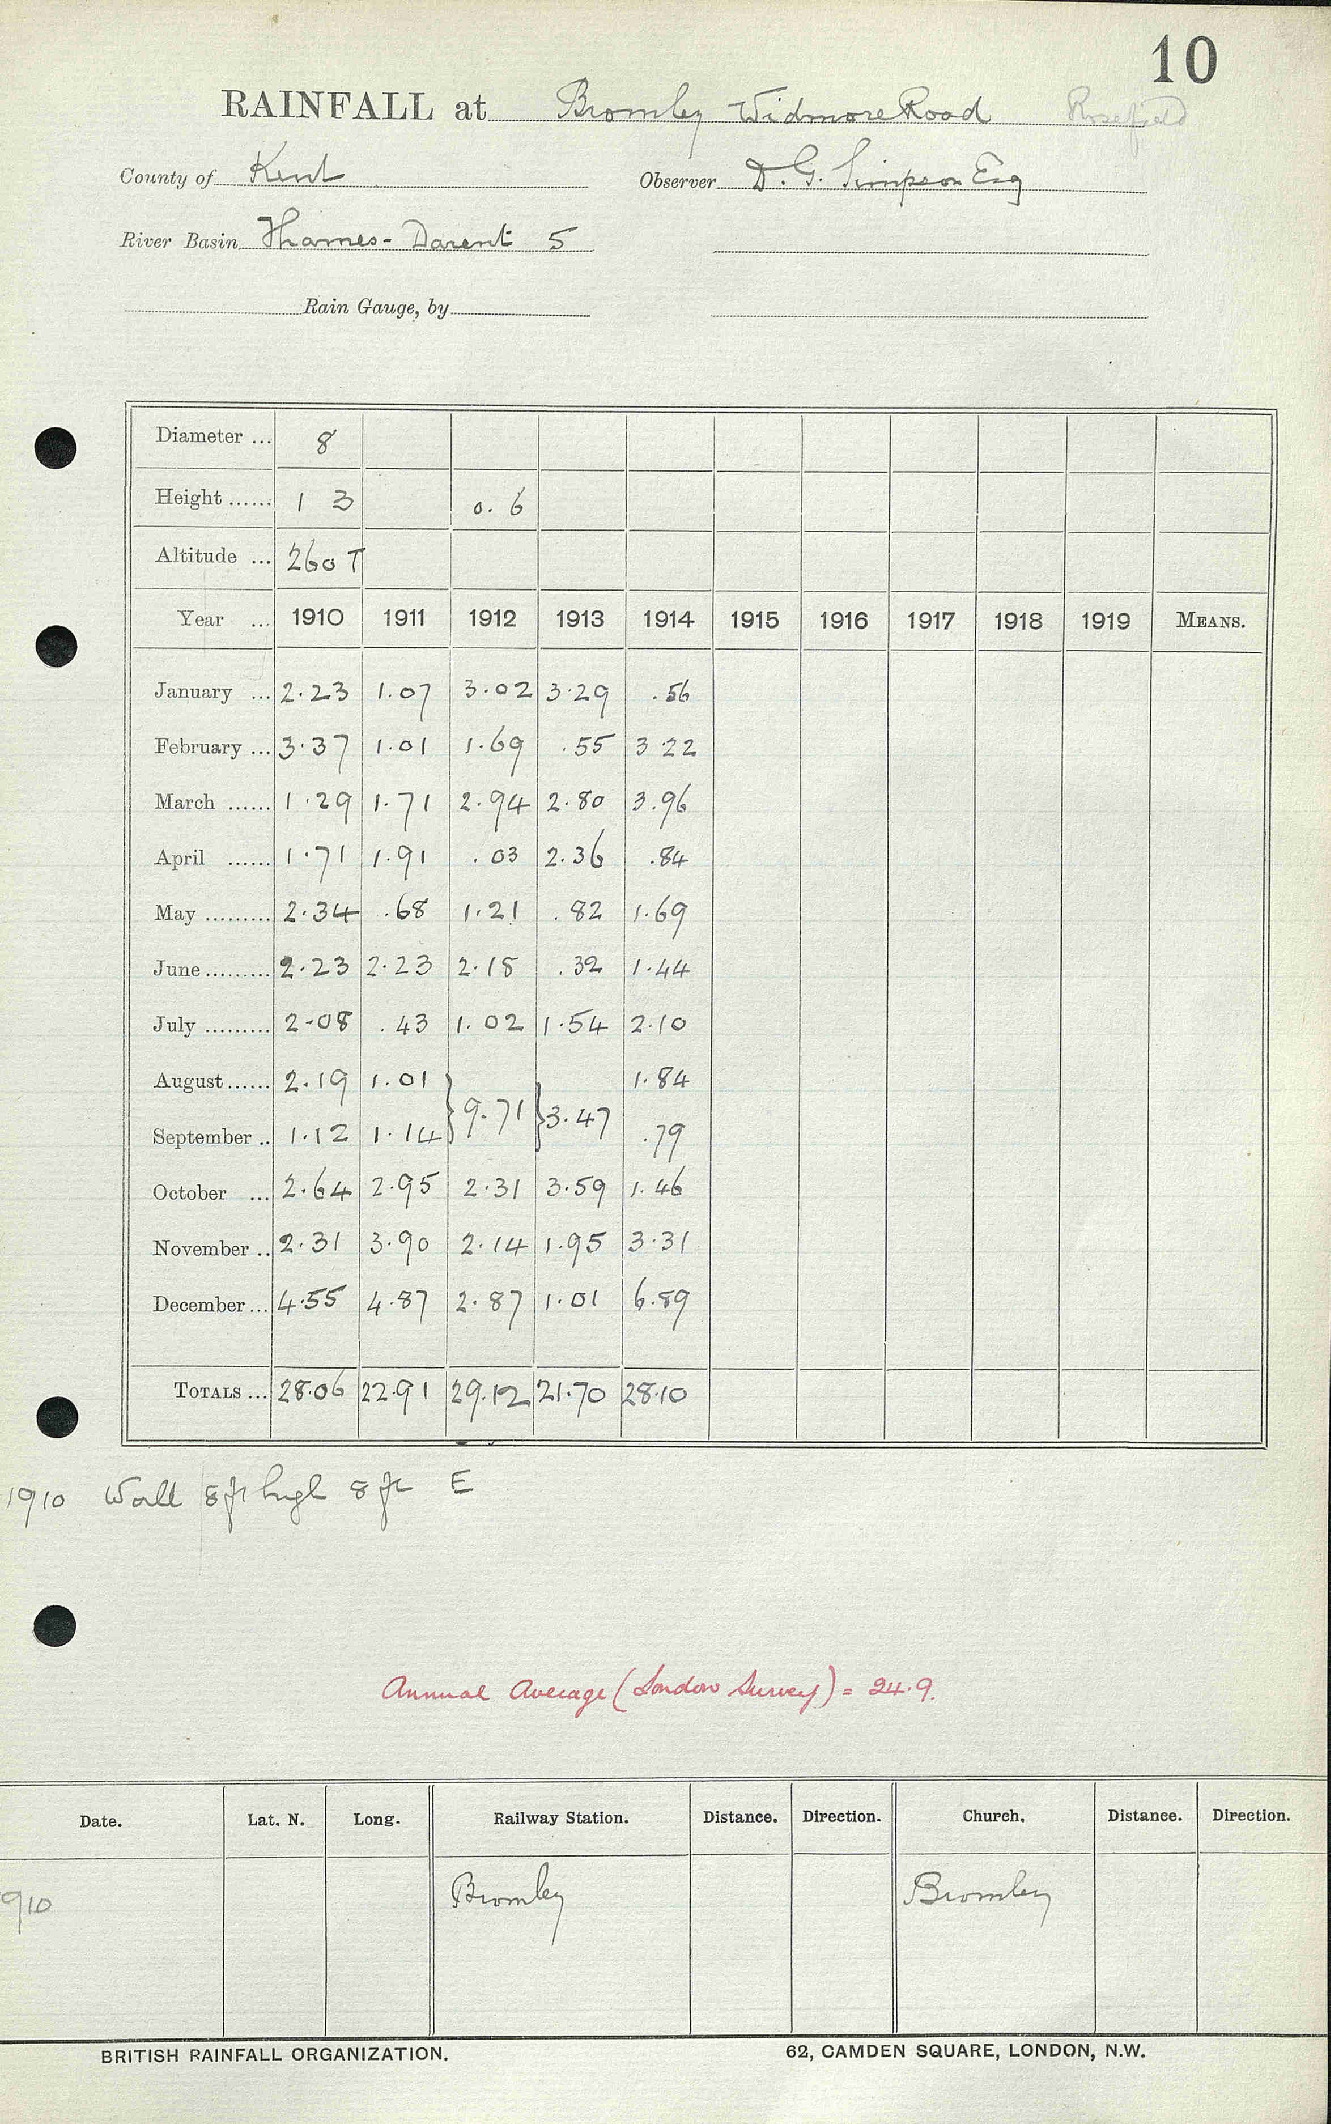 10
RAINFALL at Bromley Widmore Road Rosefield
County of Kent Observer D. G. Simpson Esq
River Basin Thames - Darent 5
Rain Gauge, by
Diameter ... 8
Height ...... 1 3 0. 6
Altitude ... 260 T
Year ... 1910 1911 1912 1913 1914 1915 1916 1917 1918 1919 MEANS.
January ... 2.23 1.07 3.02 3.29 .56
February ... 3.37 1.01 1.69 .55 3 22
March ...... 1.29 1.71 2.94 2.80 3.96
April ...... 1.71 1.91 .03 2.36 .84
May ......... 2.34 .68 1.21 .82 1.69
June ......... 2.23 2.23 2.18 .32 1.44
July ......... 2.08 .43 1.02 1.54 2.10
August ...... 2.19 1.01 } 9.71 } 3.47 1.84
September .. 1.12 1.14 .79
October ... 2.64 2.95 2.31 3.59 1.46
November .. 2.31 3.90 2.14 1.95 3.31
December ... 4.55 4.87 2.87 1.01 6.89
TOTALS ... 28.06 22.91 29.12 21.70 28.10
1910 Wall 8 ft high 8 ft E
Annual Average (London Survey) = 24.9.
Date. Lat. N. Long. Railway Station. Distance. Direction. Church. Distance. Direction.
910 Bromley Bromley
BRITISH RAINFALL ORGANIZATION. 62, CAMDEN SQUARE, LONDON, N.W.